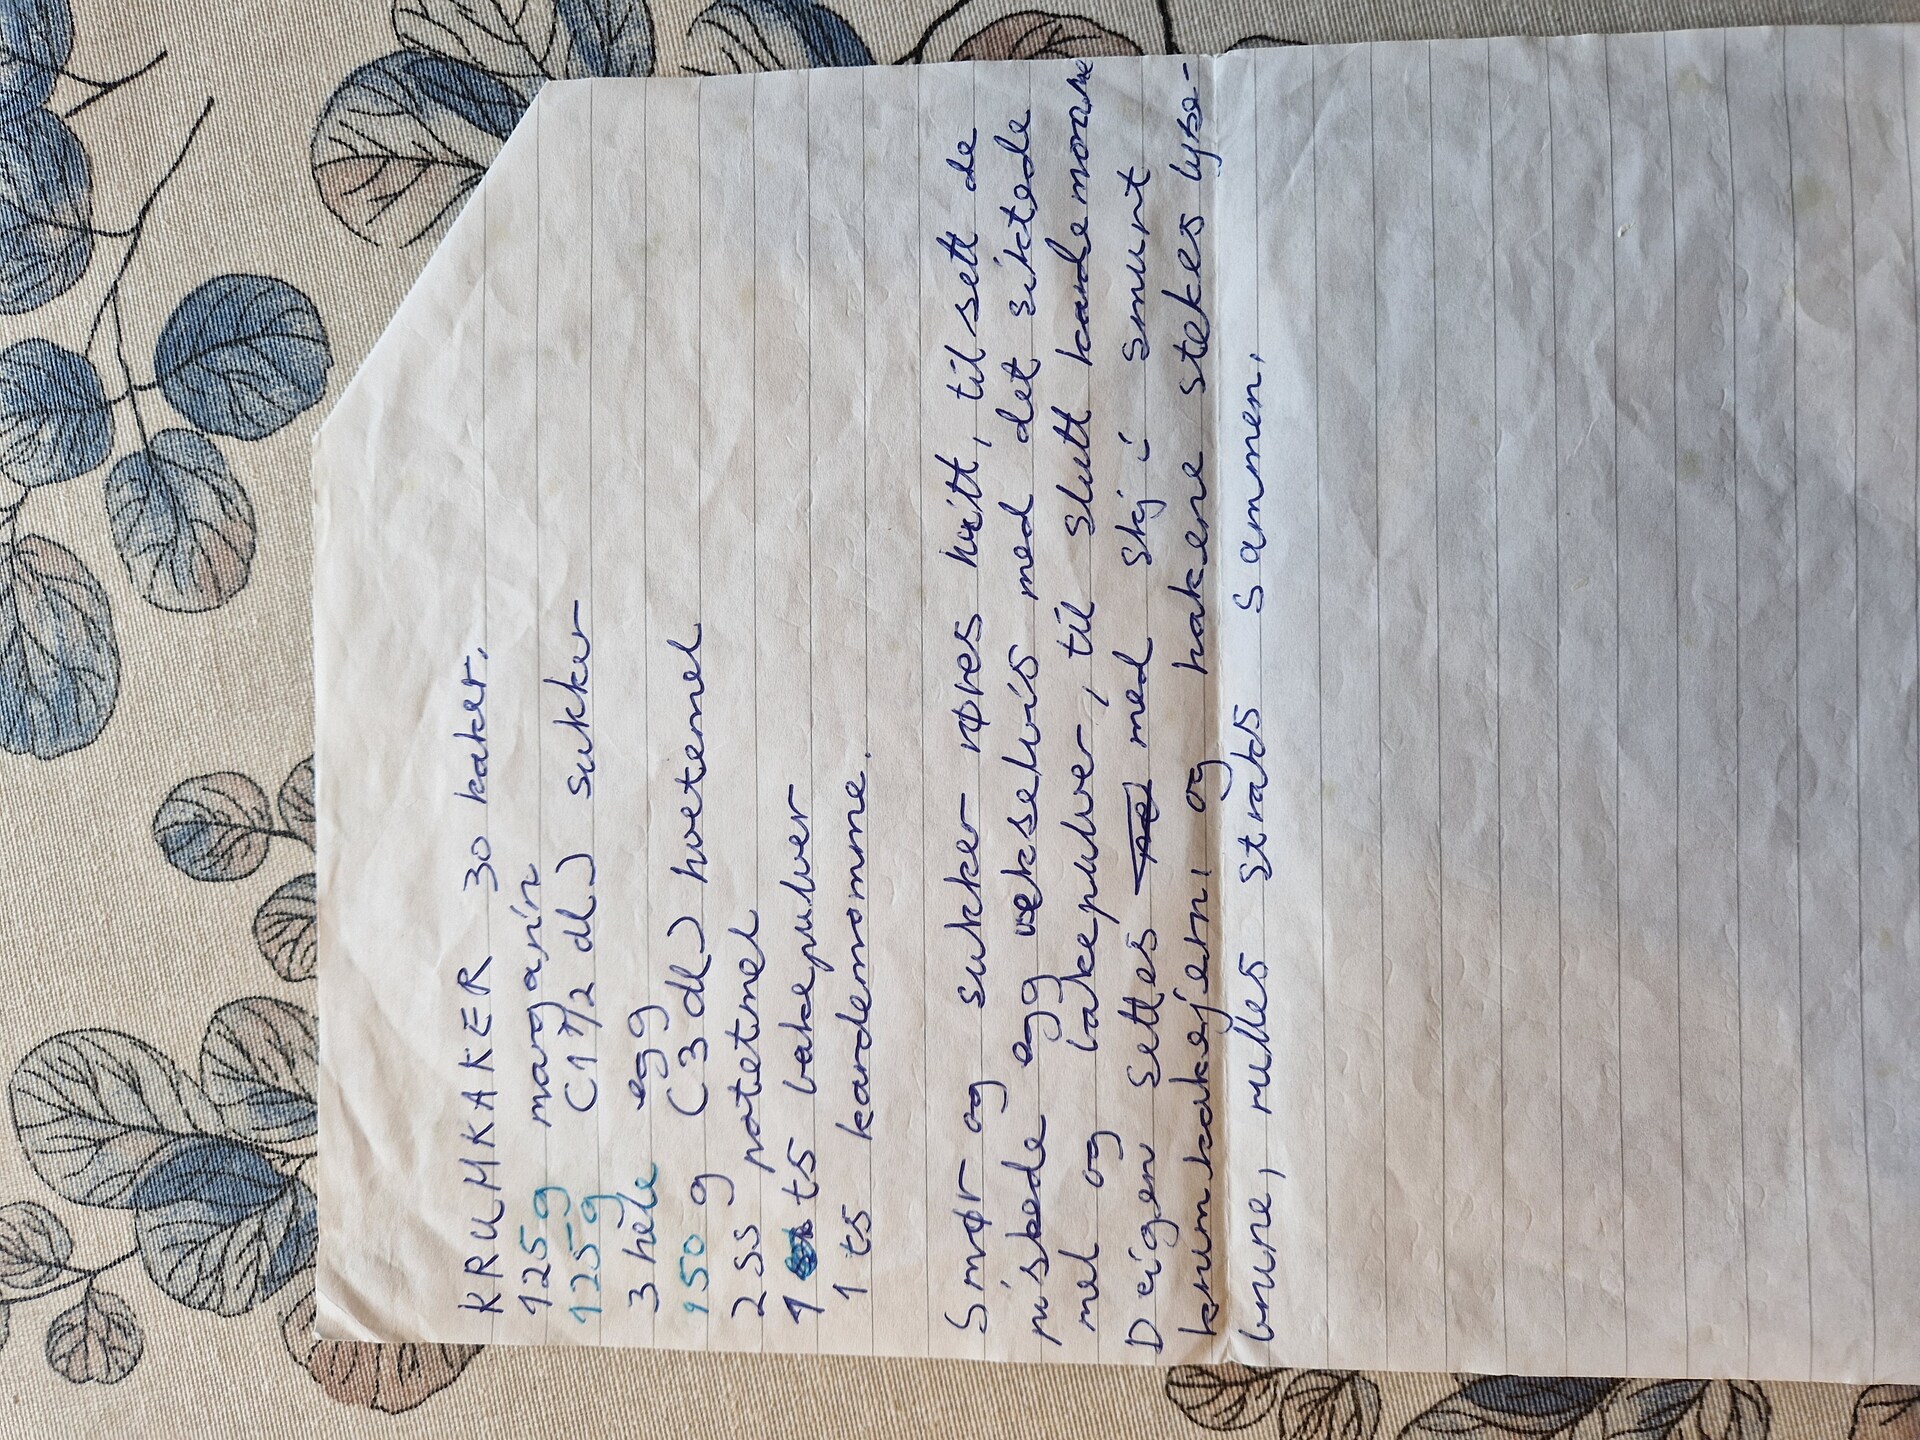 KRUMKAKER 30 kaker.
125g margarin
125g (1 1/2 dl) sukker
3 hele egg
150 g (3 dl) hvetemel
2 ss potetmel
1 ts bakepulver
1 ts kardemomme.
Smør og sukker røres hvitt, til sett de
piskede egg vekselvis med det siktede
mel og bakepulver, til slutt kardemomme
Deigen settes med skj i smurt
krumkakejern, og kakene stekes lyse-
brune, rulles straks sammen.